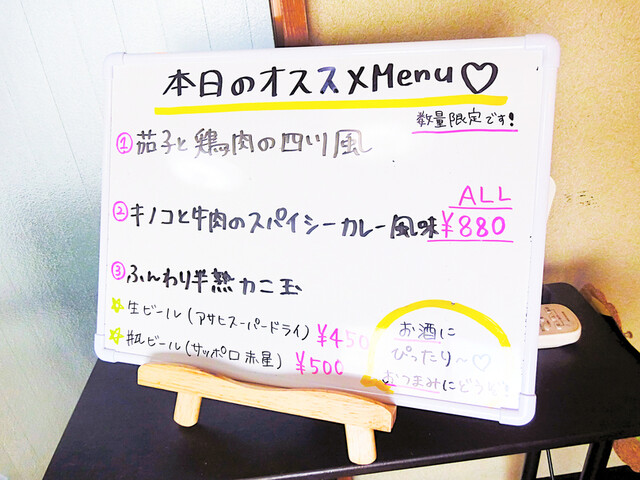 本日のオススメMenu♡
数量限定です!
①茄子と鶏肉の四川風
ALL
②キノコと牛肉のスパイシーカレー風味¥880
③ふんわり半熟カニ玉
☆生ビール(アサヒスーパードライ)¥450
☆瓶ビール(サッポロ赤星)¥500
お酒に
ぴったり～♡
おつまみにどうぞ!